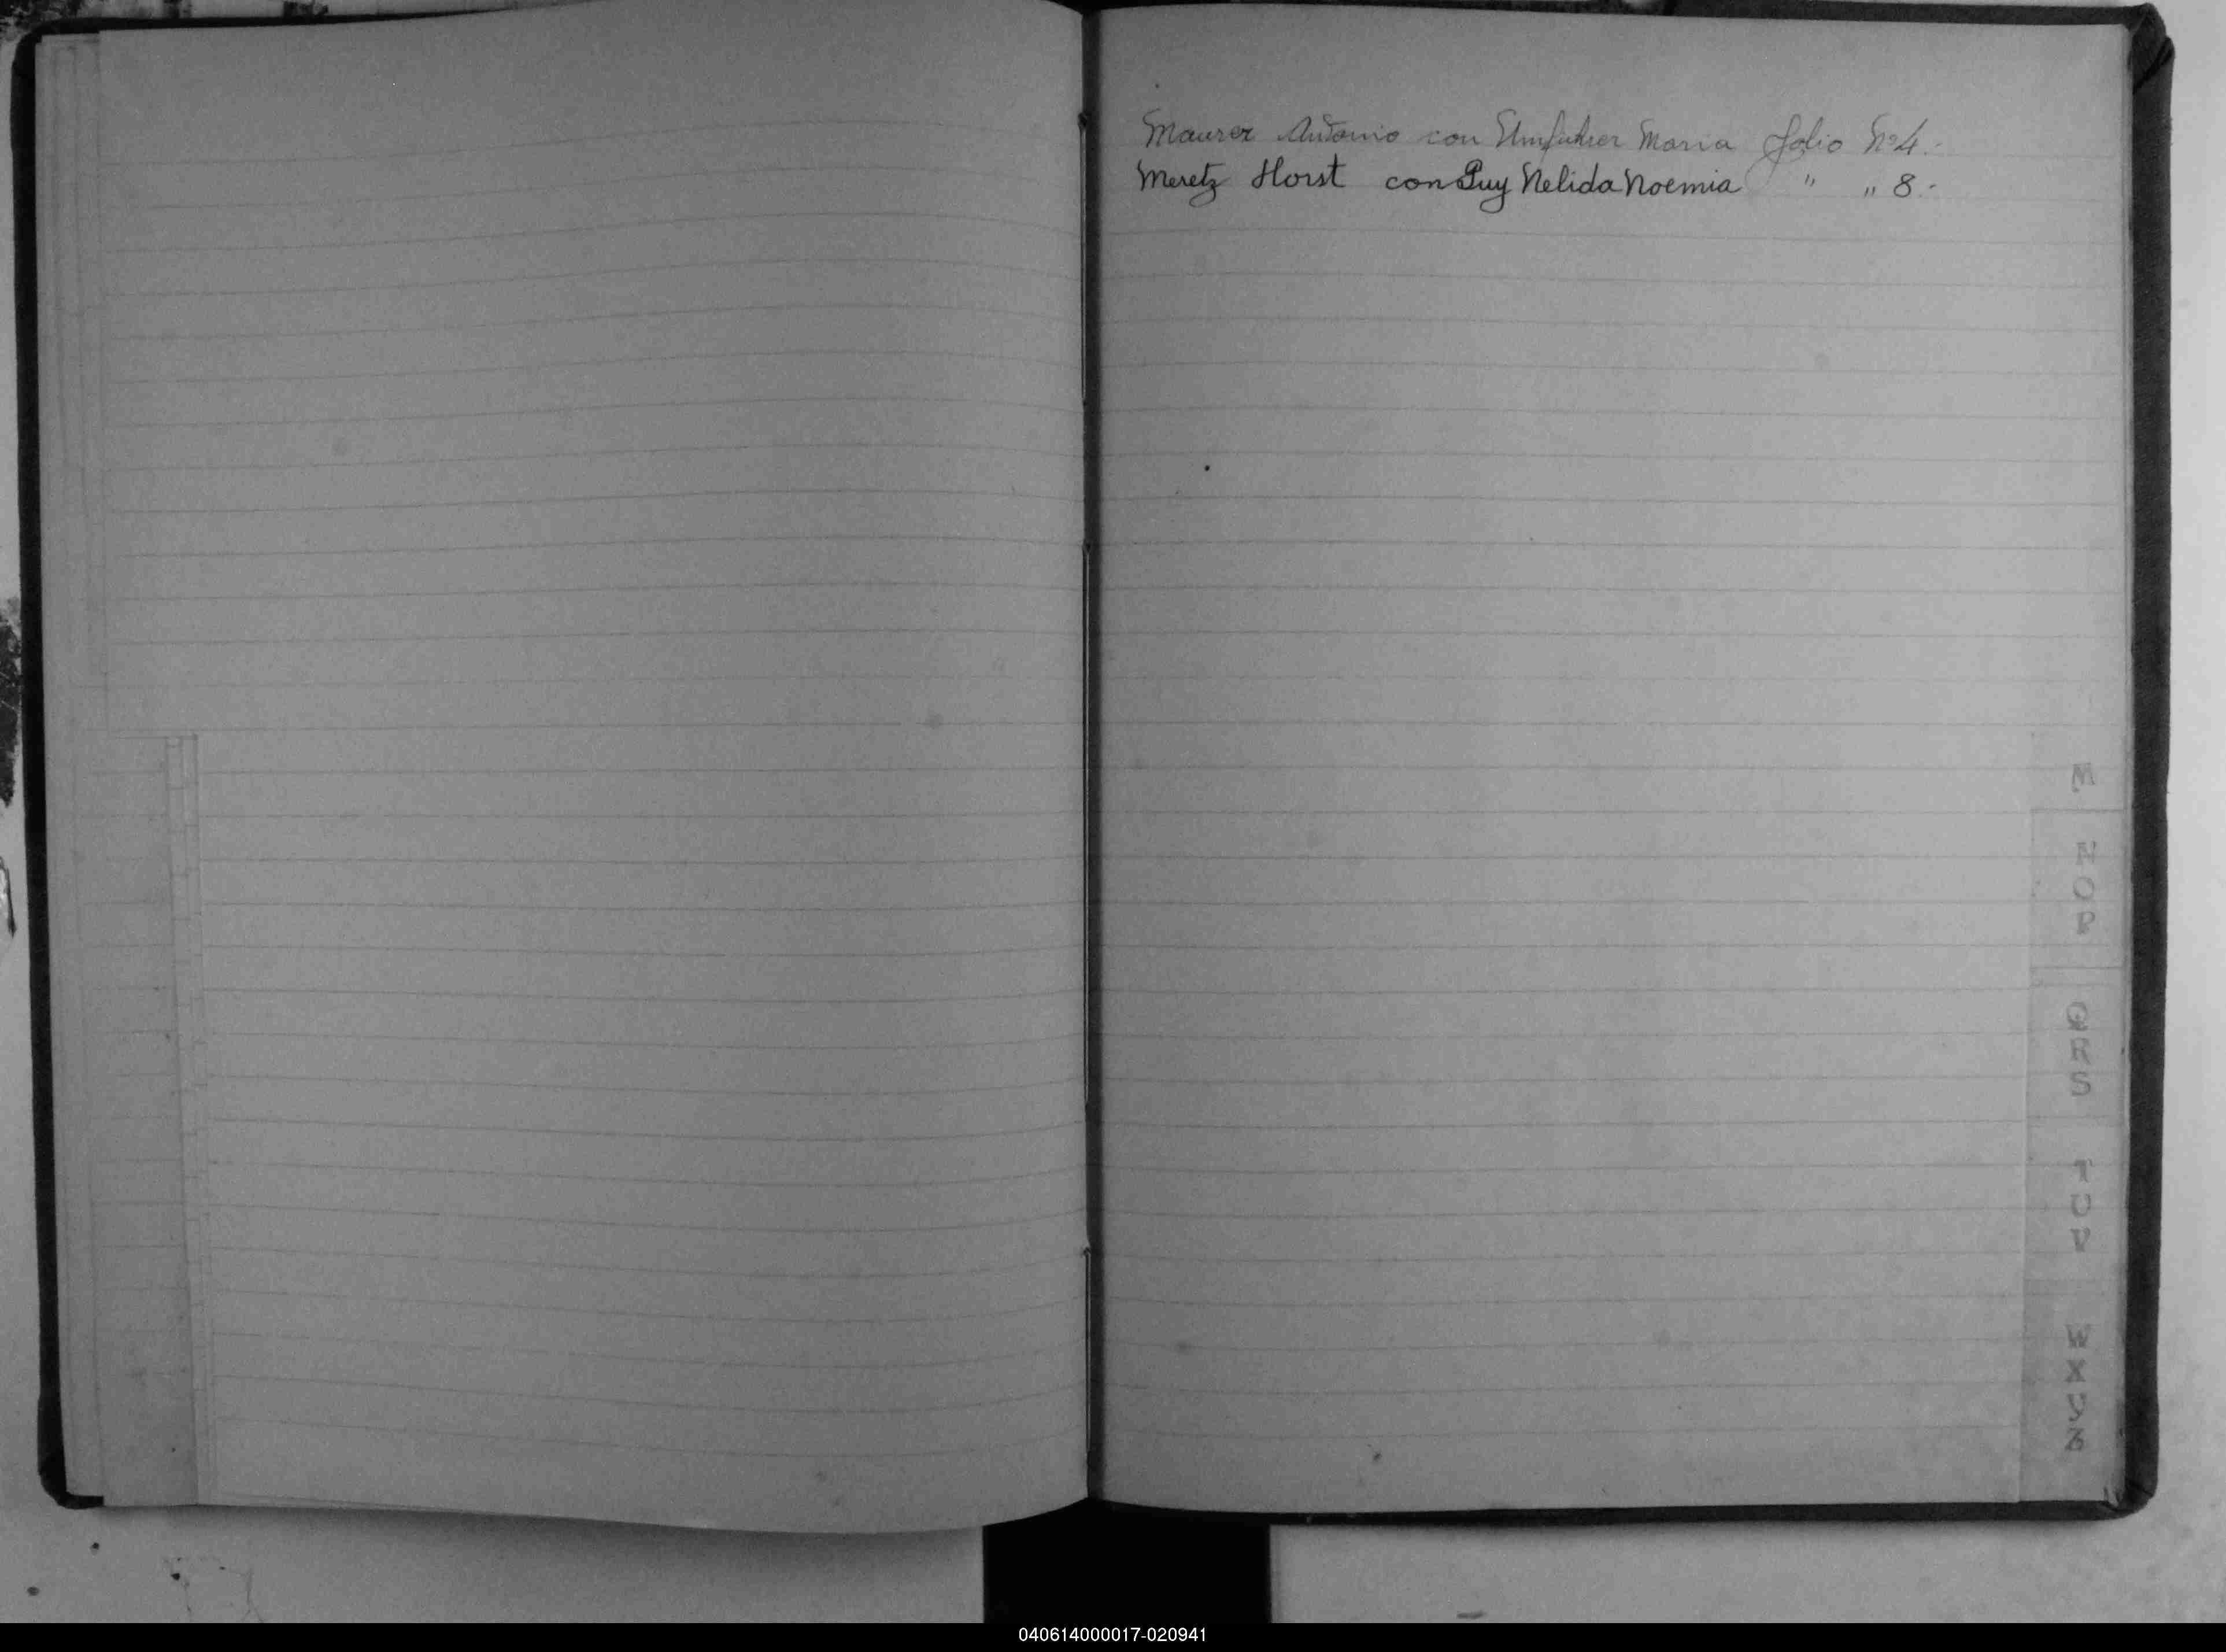 Maurer Antonio con Umfahrer Maria Folio Nº 4.-
Meretz Horst con Puy Nelida Noemia " " 8.-
M
N
O
P
Q
R
S
T
U
V
W
X
Y
Z
040614000017-020941